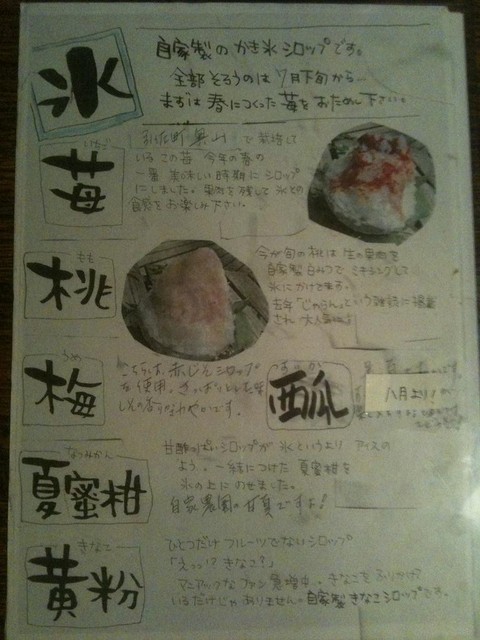 氷
自家製のかき氷シロップです。
全部そろうのは7月下旬から
まずは春につくった苺をおためし下さい。
いちご
苺
引佐町奥山で栽培して
いるこの苺 今年の春の
一番美味しい時期にシロップ
にしました。果肉を残して氷との
食感をお楽しみ下さい。
もも
桃
今が旬の桃は生の果肉を
自家製白みつでミキシングして
氷にかけます。
去年「じゃらん」という雑誌に掲載
され大人気
うめ
梅
こちらは、赤じそシロップ
を使用。さっぱりとした味
しその香りさわやかです。
すいか
西瓜
八月より!
なつみかん
夏蜜柑
甘酸っぱいシロップが氷というよりアイスの
よう。一緒につけた夏蜜柑を
氷の上にのせました。
自家農園の甘夏ですよ!
きなこ
黄粉
ひとつだけフルーツでないシロップ
「えっ!?きなこ?」
マニアックなファン急増中。きなこをふりかけて
いるだけじゃありません。自家製きなこシロップです。